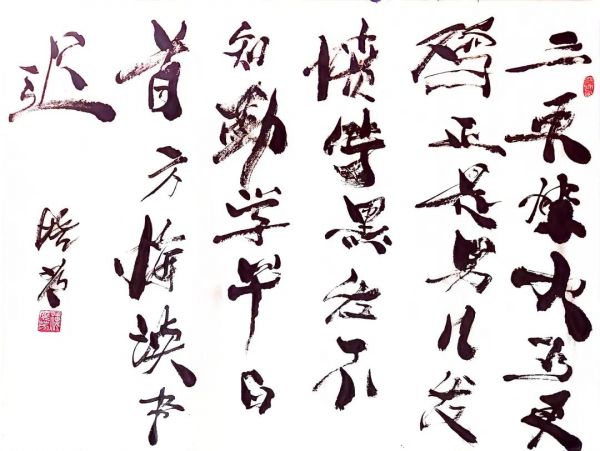 三更燈火五更
鸡正是男儿发
愤時黑发不
知勤学早白
首方悔读书
迟